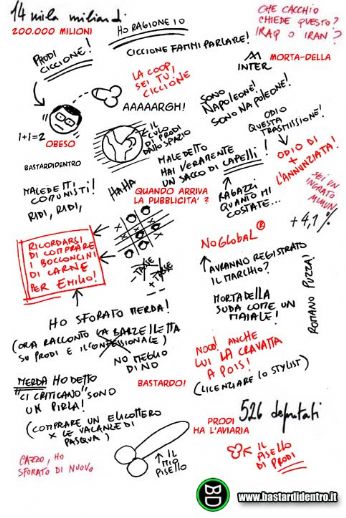 14 mila miliardi
200.000 MILIONI
HO RAGIONE IO
CHE CACCHIO
CHIEDE QUESTO?
IRAQ O IRAN?
PRODI
CICCIONE!
CICCIONE FAMMI PARLARE!
MORTA-DELLA
INTER
LA COOP,
SEI TU!
CICCIONE
SONO
NAPOLEONE!
SONO NAPOLEONE!
AAAAARGH!
1+1=2
OBESO
IL CULO
DI PRODI
DALLO SPAZIO
ODIO
QUESTA
TRASMISSIONE!
BASTARDIDENTRO
MALEDETTO
HAI VERAMENTE
UN SACCO DI CAPELLI!
ODIO DI +
L'ANNUNZIATA!
MALEDETTI
COMUNISTI!
RIDI, RIDI,
HAHA
QUANDO ARRIVA
LA PUBBLICITA'?
RAGAZZI
QUANTO MI
COSTATE...
SEI UN
INGRATO
MIMUN!
+4,1%
RICORDARSI
DI COMPRARE
I BOCCONCINI
DI CARNE
PER EMILIO!
NOGLOBAL®
AVRANNO REGISTRATO
IL MARCHIO?
- TASSE
- TASSE
HO SFORATO MERDA!
MORTADELLA
SUDA COME UN
MAIALE!
ROMANO PUZZA!
(ORA RACCONTO LA BARZELLETTA
SU PRODI E IL CONFESSIONALE)
NO MEGLIO
DI NO
NOOO! ANCHE
LUI LA CRAVATTA
A POIS!
(LICENZIARE LO STYLIST)
MERDA HO DETTO
"CI CRITICANO" SONO
UN PIRLA!
BASTARDO!
(COMPRARE UN ELICOTTERO
X LE VACANZE DI
PASQUA)
PRODI
HA L'AVIARIA
526 deputati
CAZZO, HO
SFORATO DI NUOVO
IL MIO
PISELLO
IL
PISELLO
DI PRODI
www.bastardidentro.it